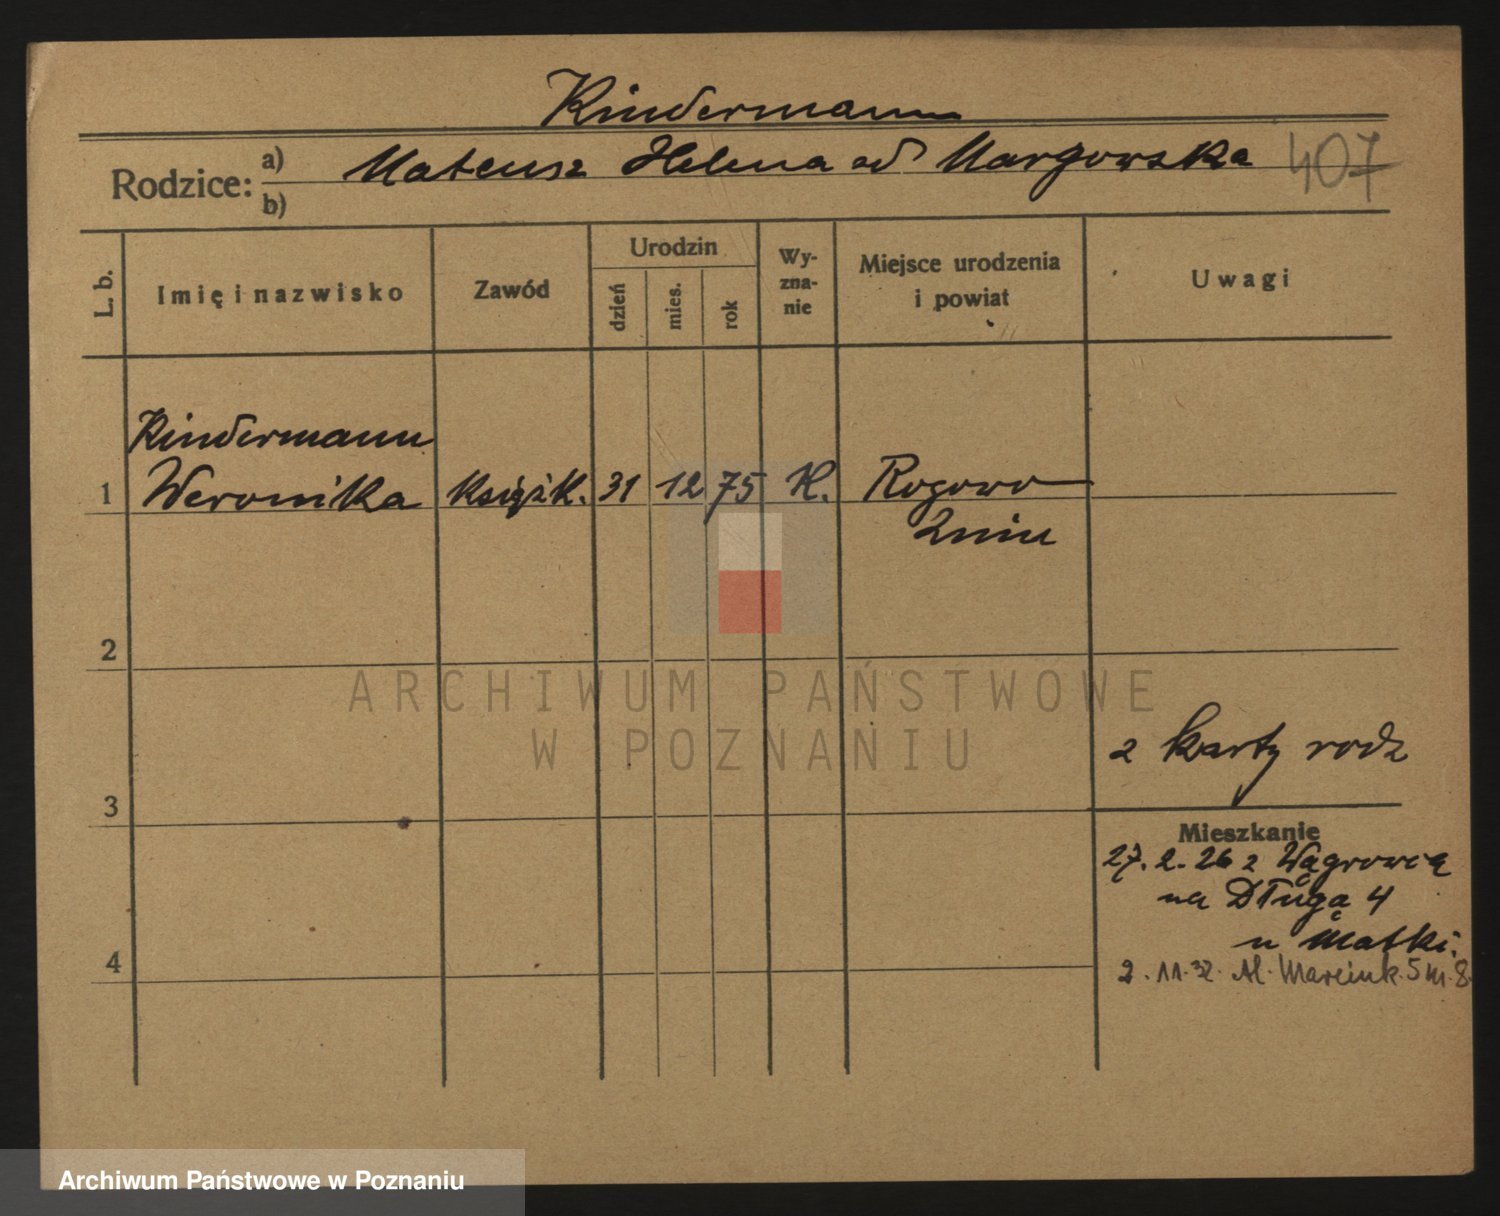 Kindermann
Rodzice: a) Mateusz Helena od Margowska 407
b)
L. b.
Imię i nazwisko
Zawód
Urodzin
dzień
mies.
rok
Wy-
zna-
nie
Miejsce urodzenia
i powiat
Uwagi
Kindermann
1 Weronika Książk. 31 12 75 K. Rogowo
Żnin
2
z karty rodz
3
Mieszkanie
27.2.26 z Wągrowca
na Długą 4
u Matki.
4
2.11.32. Al. Marcink. 5 m. 8.
ARCHIWUM PAŃSTWOWE
W POZNANIU
Archiwum Państwowe w Poznaniu